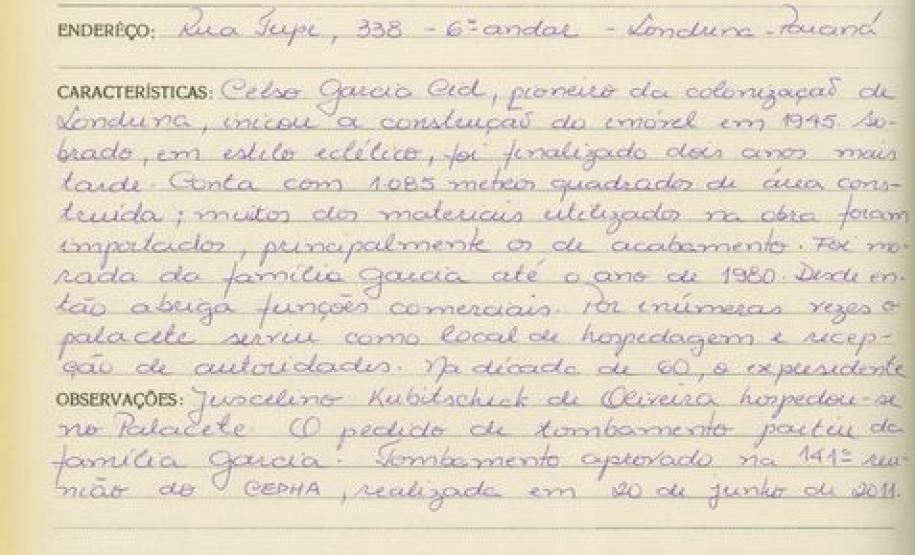 ENDERÊÇO: Rua Tupi, 338 - 6º andar - Londrina - Paraná
CARACTERÍSTICAS: Celso Garcia Cid, pioneiro da colonização de
Londrina, iniciou a construção do imóvel em 1945. So-
brado, em estilo eclético, foi finalizado dois anos mais
tarde. Conta com 1.085 metros quadrados de área cons-
truída; muitos dos materiais utilizados na obra foram
importados, principalmente os de acabamento. Foi mo-
rada da família Garcia até o ano de 1980. Desde en-
tão abriga funções comerciais. Por inúmeras vezes o
palacete serviu como local de hospedagem e recep-
ção de autoridades. Na década de 60, o expresidente
OBSERVAÇÕES: Juscelino Kubitscheck de Oliveira hospedou-se
no Palacete. O pedido de tombamento partiu da
família Garcia. Tombamento aprovado na 141ª reu-
nião do CEPHA, realizada em 20 de junho de 2011.